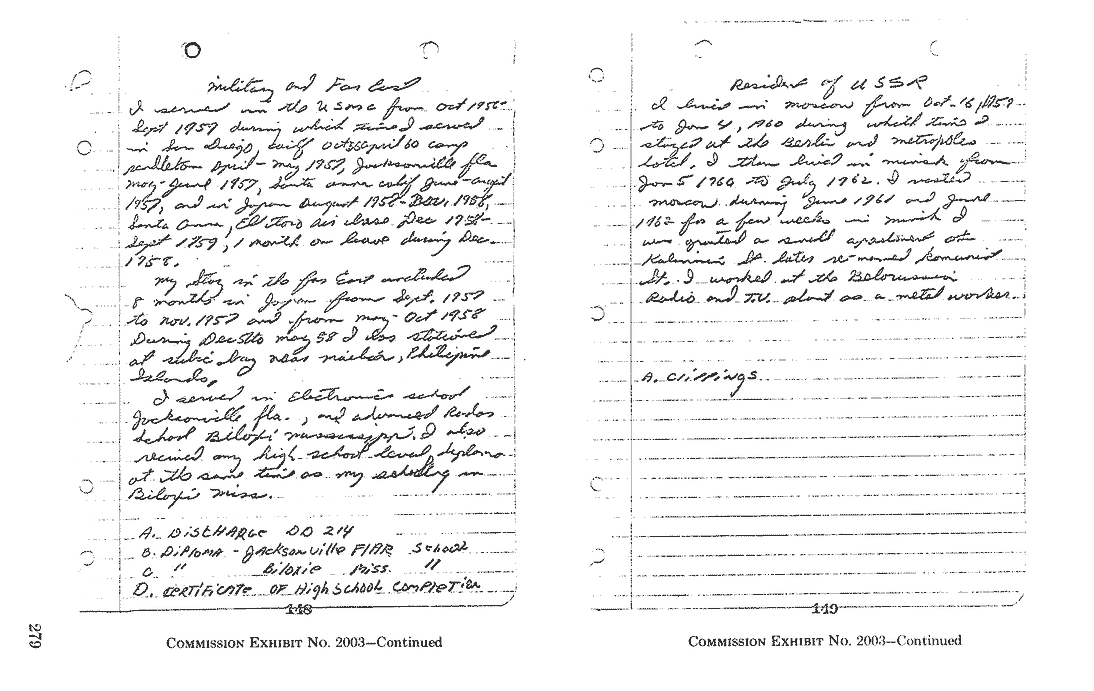 Military and Far East
I served in the USMC from Oct 1956-
Sept 1959 during which time I served
in San Diego, calif camp
pendleton April-may 1957, Jacksonville fla
may-June 1957, Santa anna calif June-august
1957, and in Japan august 1958-Nov. 1958,
Santa Anna, El Toro air base Dec 1958-
Sept 1959, 1 month on leave during Dec.
1958.
my stay in the far East included
8 months in Japan from Sept. 1957
to nov. 1957 and from may-Oct 1958
During Dec 57 to may 58 I was stationed
at subic bay near Philipine
Islands,
I served in Electronics school
Jacksonville fla., and advanced Radar
School Biloxi mississippi. I also
recived my high school level diploma
at the same time as my schooling in
Biloxi miss.
A. DISCHARGE DD 214
B. DiPloMA - JAcksonville School
C. " Biloxie Miss. "
D. CERTIFICATE OF High School COMPLETION
148
COMMISSION EXHIBIT No. 2003—Continued
279
Resident of USSR
I lived in moscow from Oct-16, 1959
to Jan 4, 1960 during which time I
stayed at the Berlin and metropoles
hotel. I then lived in minsk from
Jan 5 1960 to July 1962. I visted
moscow durning June 1961 and June
1962 for a few weeks in minsk I
was granted a small apartment at
Kalinina St. later re-named Komunist
St. I worked at the Belorussian
Radio and T.V. plant as a metal worker.
A. Clippings
149
COMMISSION EXHIBIT No. 2003—Continued